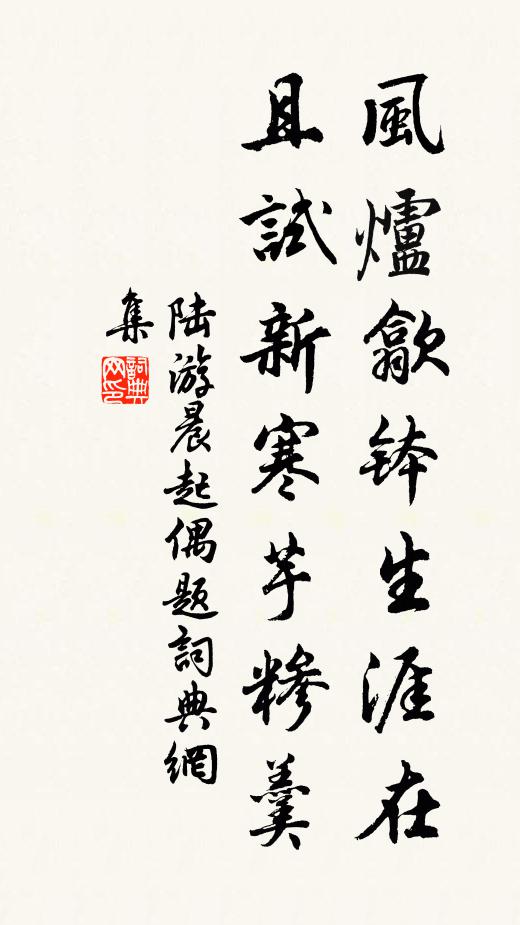 風爐歙缽生涯在
且試新寒芋糝羹
陸游晨起偶題詞典網
集
詞典
网印